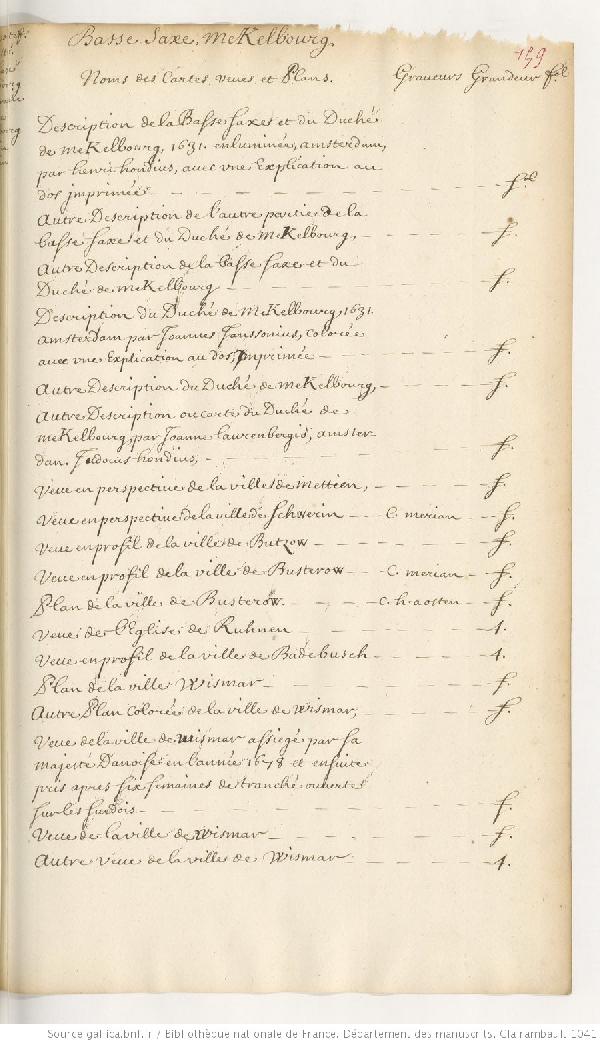 Basse Saxe, MeKelbourg.
159
Noms des Cartes, veues, et Plans. Graveurs Grandeur
Description de la Basse Saxe et du Duché
de meKelbourg, 1631. enluminée, amsterdam,
par henri hondius, avec vne Explication au
dos jmprimée
autre Description de l'autre partie de la
basse Saxe et du Duché de meKelbourg, f.
autre Description de la basse Saxe et du
Duché de meKelbourg f.
Description du Duché de MeKelbourg, 1631.
amsterdam par Joannes Janssonius, colorée
avec vne Explication au dos, Jmprimée f.
autre Description du Duché de meKelbourg, f.
autre Description ou carte du Duché de
meKelbourg, par Joanne laurenbergis, amster-
dam. Jodocus hondius, f.
Veue en perspective de la ville de mettien, f.
Veue en perspective de la ville de Schwerin C. merian f.
Veue en profil de la ville de Butzow f.
Veue en profil de la ville de Busterow C. merian f.
Plan de la ville de Busterow. C. h. aosten f.
Veue de l'Eglise de Ruhnen 4.
Veue en profil de la ville de Badebusch 4.
Plan de la ville Wismar f.
Autre Plan colorié de la ville de wismar, f.
Veue de la ville de wismar assiegé par sa
majesté Danoise en l'année 1678 et ensuite
pris apres six semaines de tranché ouverte
sur les suedois f.
Veue de la ville de wismar f.
Autre veue de la ville de Wismar 4.
Source gallica.bnf.fr / Bibliothèque nationale de France. Département des manuscrits. Clairambault 1041